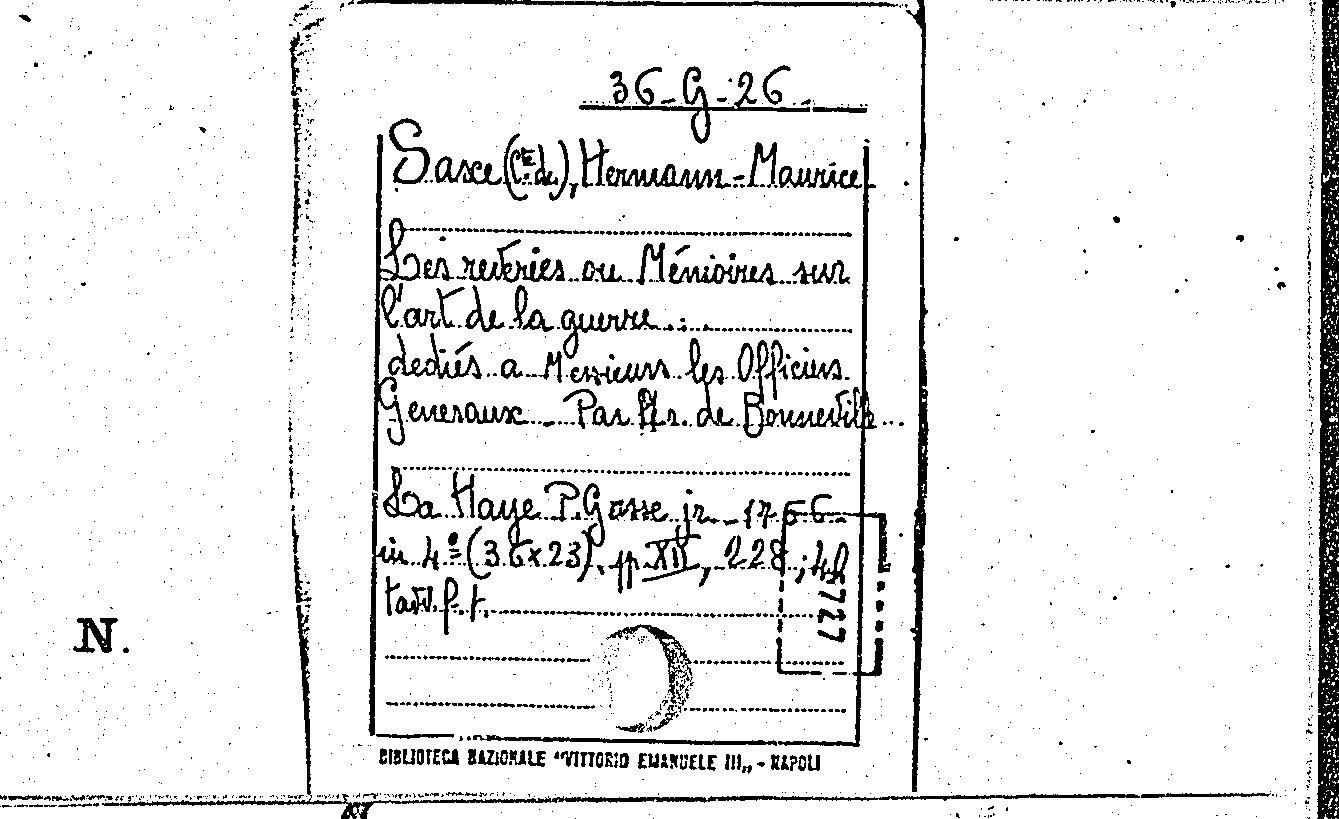 36-G-26-
Saxe (Cte de), Hermann-Maurice
Les reveries ou Mémoires sur
l'art de la guerre...
dediés a Messieurs les Officiers
Generaux - Par Mr. de Bonneville...
La Haye P. Gosse jr. - 1756-
in 4º (36x23). pp XII, 228; 40
tavv. f. t.
5727
N.
BIBLIOTECA NAZIONALE "VITTORIO EMANUELE III„ - NAPOLI